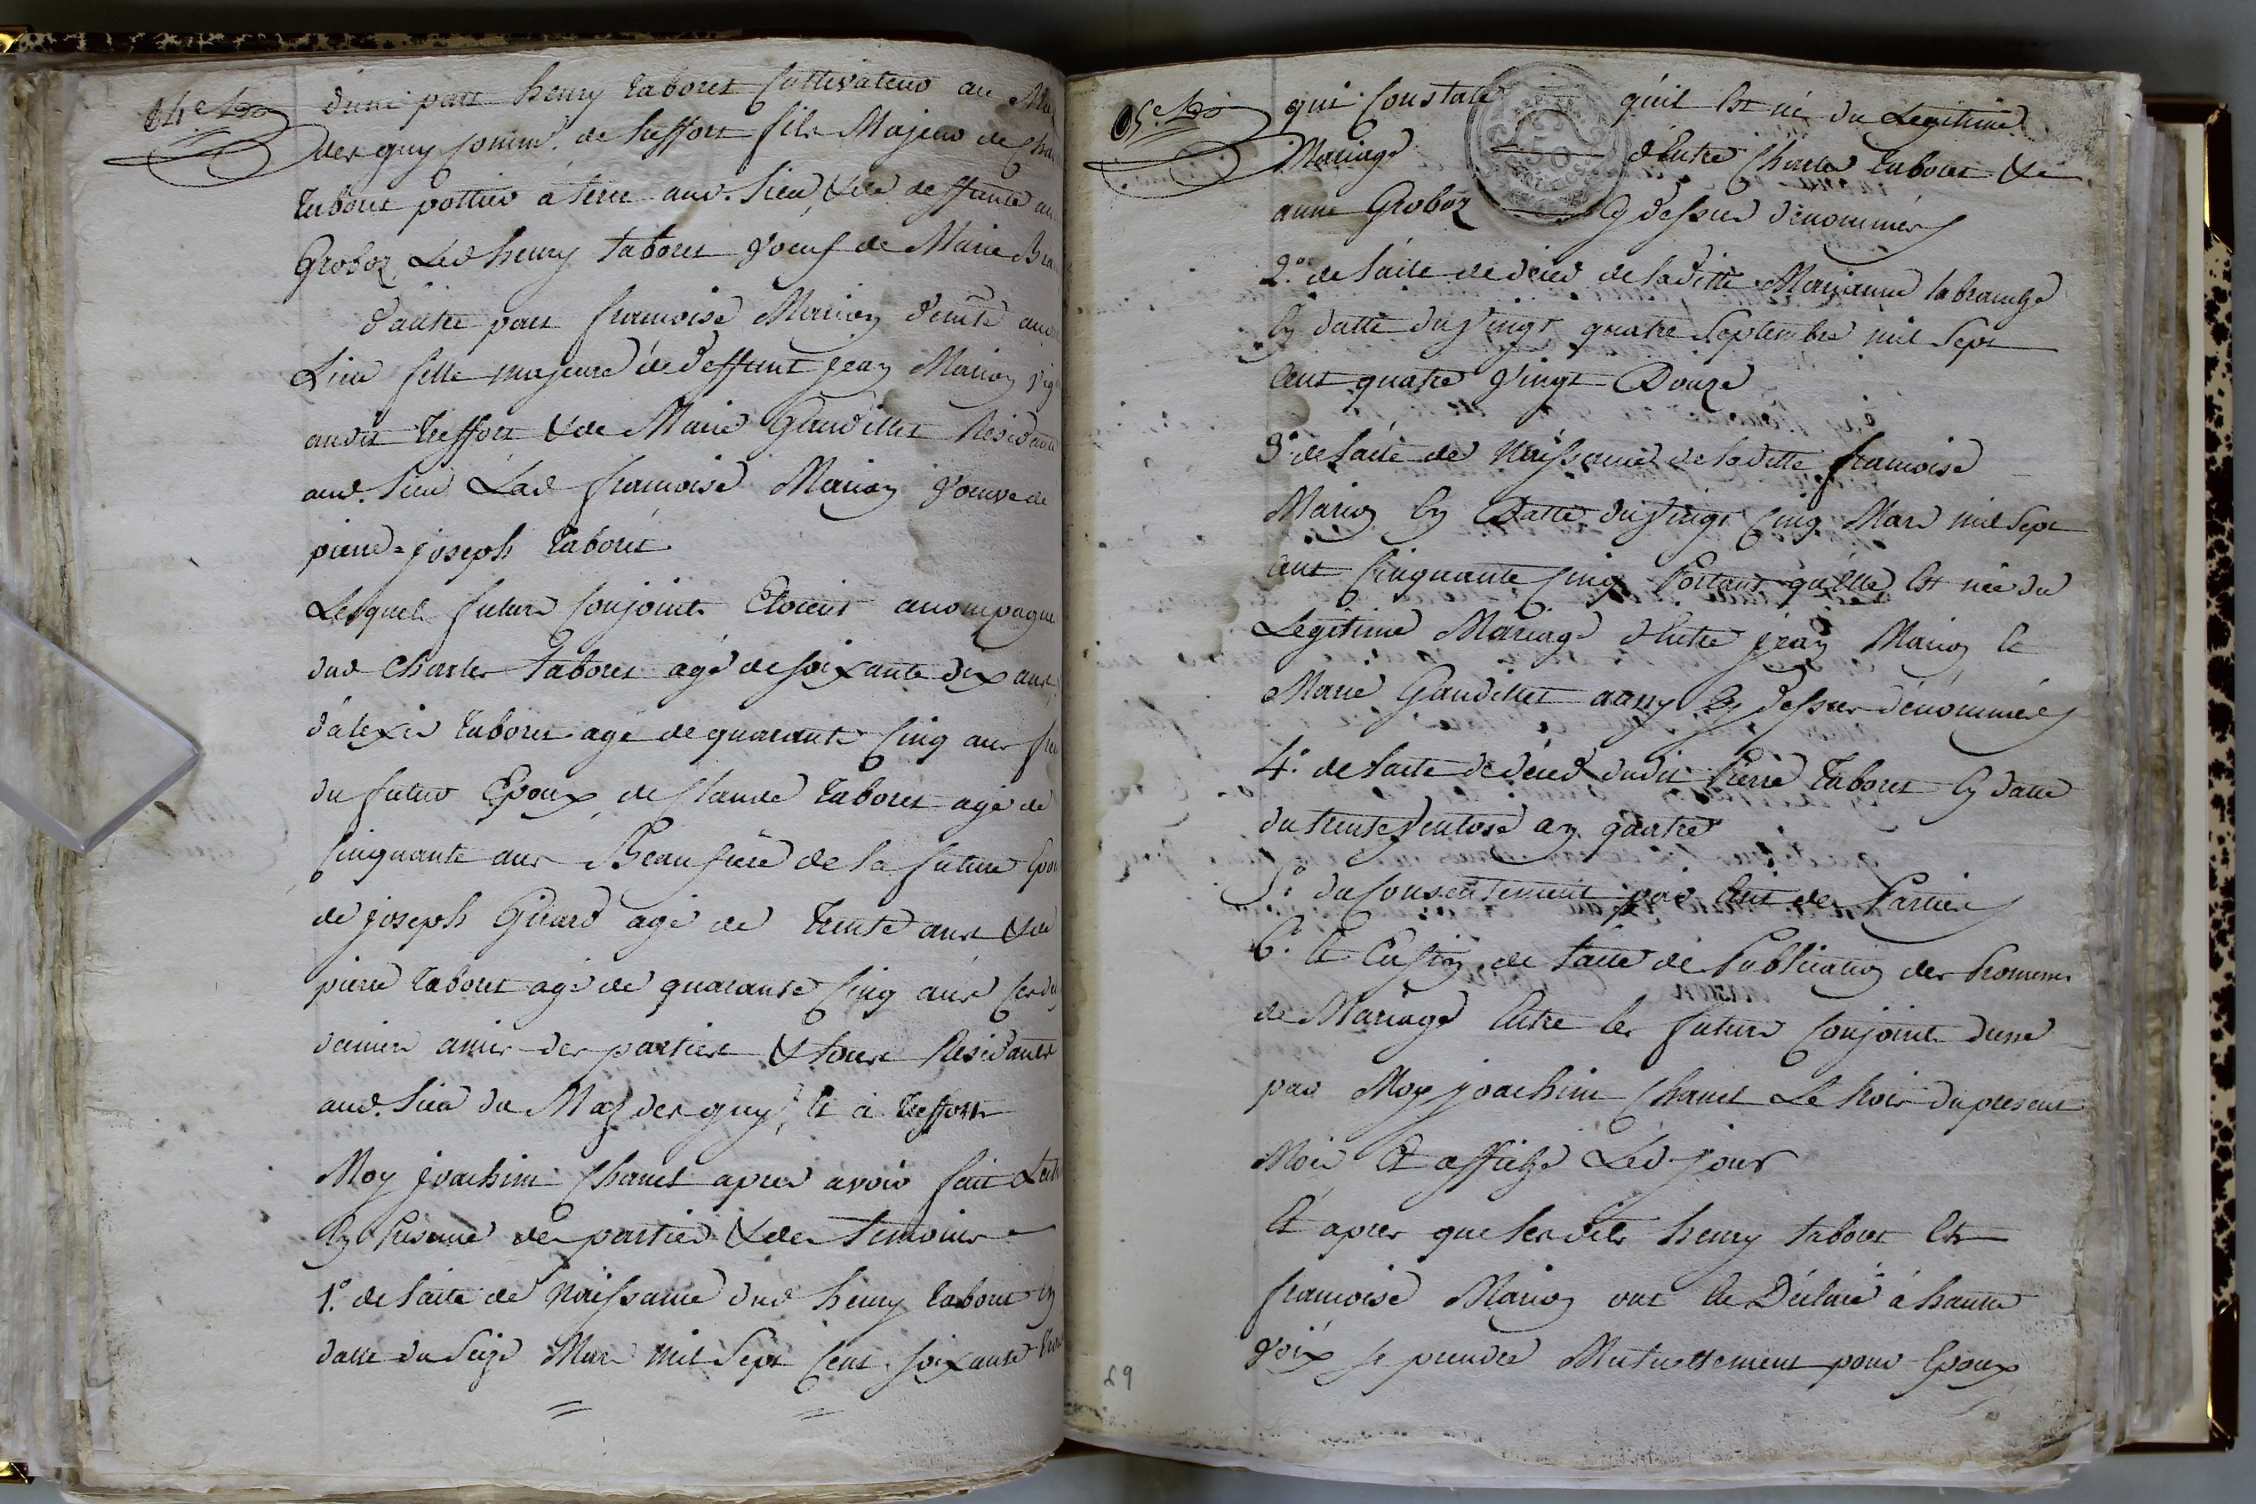 d'une part henry taboret Cultivateur au
des guy Comm.e de treffort fils Majeur de
taboret pottier a terre aud. Lieu & de deffunte
Groboz Led henry taboret Voeuf de Marie
d'autre part francoise Marion
Lieu fille majeure de deffunt jean Marion
audit treffort & de Marie Gaudillet Residante
aud. Lieu Lad francoise Marion Veuve de
pierre = joseph taboret
Lesquels futurs Conjoints Etoient
dud Charles taboret agé de soixante dix ans
d'alexis taboret agé de quarante Cinq ans
du futur Epoux de Claude taboret agé de
Cinquante ans Beaufrere de la future
de joseph Girard agé de trente ans & de
pierre taboret agé de quarante Cinq ans
derniers amis des parties & tous Residants
aud. Lieu du Maz des guy, et a treffort
Moy joachim Chanel apres avoir fait
En presence des parties & des temoins
1.° de L'acte de Naissance dud henry taboret En
datte du Seize Mars Mil Sept Cent soixante
qui Constate qu'il Est né du Legitime
Mariage d'Entre Charles taboret & de
anne Groboz Cy dessus dénommés
2.° de L'acte de déces de laditte Marianne
En datte du Vingt quatre Septembre mil Sept
Cent quatre Vingt Douze
3.° de L'acte de Naissance de laditte francoise
Marion En Datte du Vingt Cinq Mars mil Sept
Cent Cinquante Cinq Portant qu'Elle Est née du
Legitime Mariage d'Entre jean Marion et
Marie Gaudillet aussy Cy dessus dénommés
4.° de L'acte de déces dudit Pierre taboret En datte
du trente Ventose an quatre
5.° du Consentement par Ecrit des Parties
6.° Et Enfin de L'acte de Publication des Promesses
de Mariage Entre les futurs Conjoints dressé
par Moy joachim Chanel Le trois du present
Mois Et affiché Led jour
Et apres que lesdits henry taboret Et
francoise Marion ont Eu Déclaré à haute
Voix se prendre Mutuellement pour Epoux
69